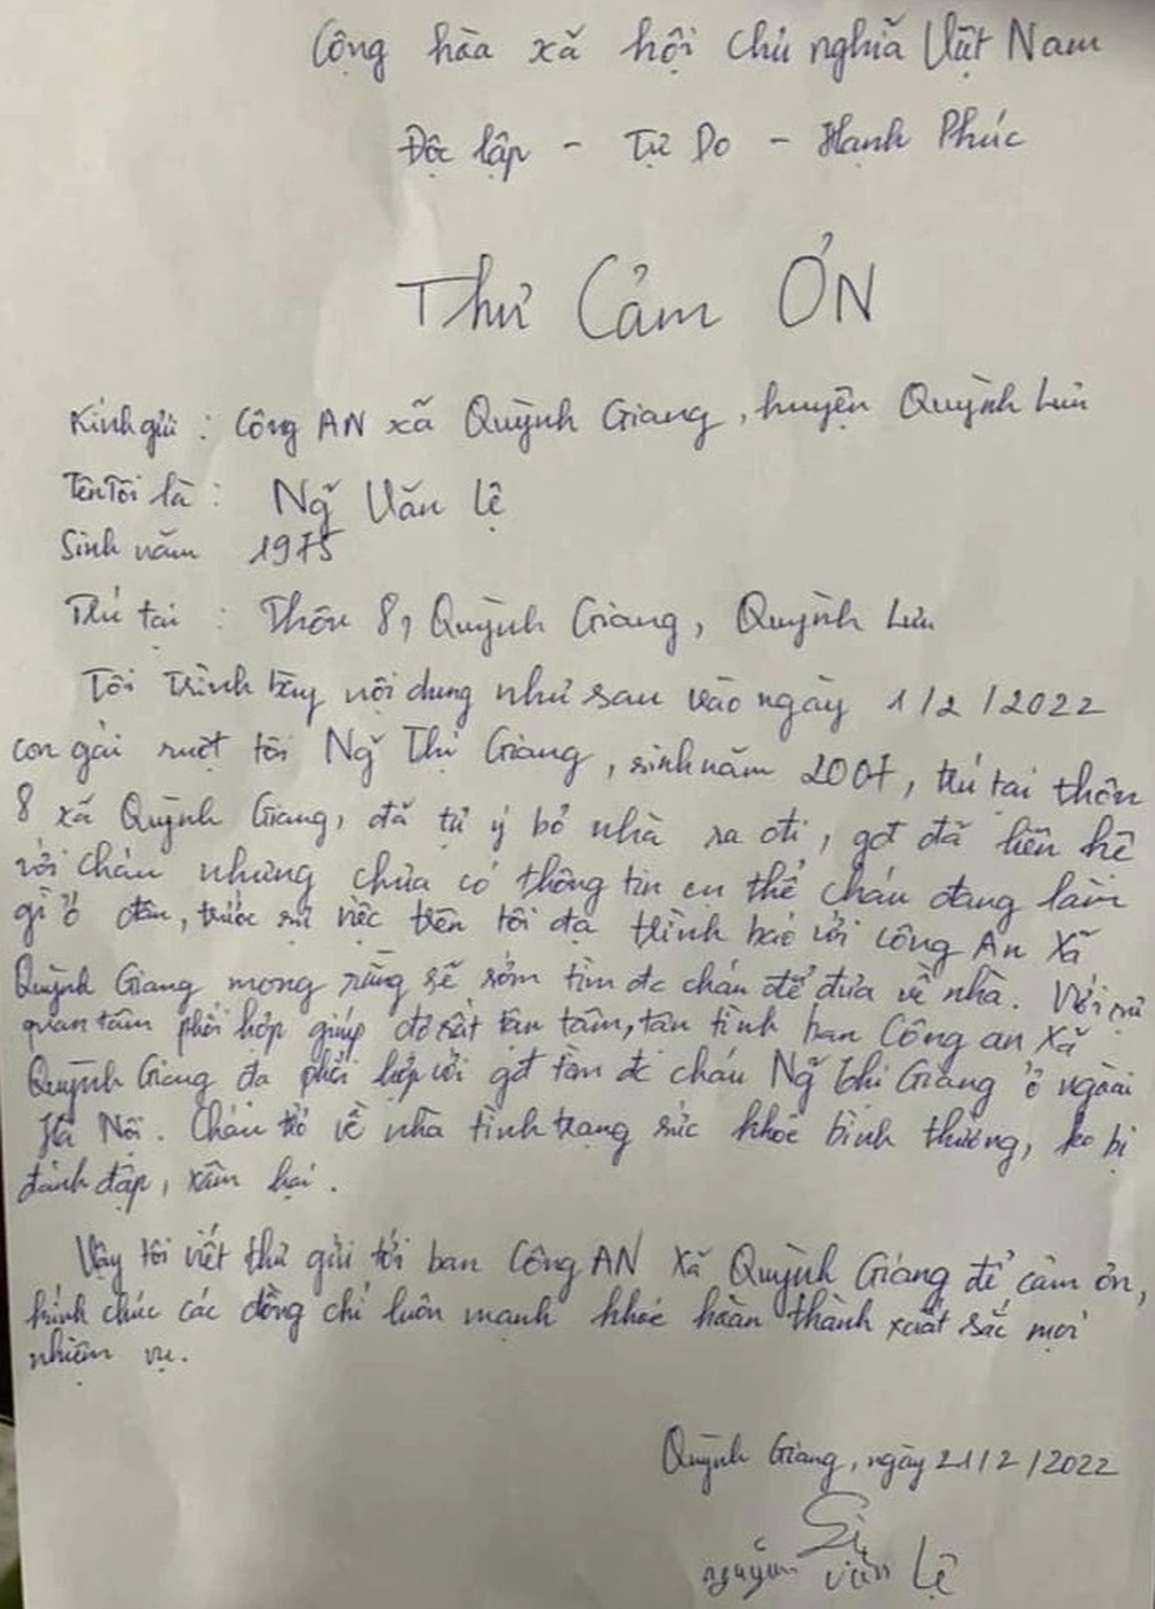 Cộng hòa xã hội chủ nghĩa Việt Nam
Độc lập - Tự Do - Hạnh Phúc
Thư Cảm ƠN
Kính gửi : Công AN xã Quỳnh Giang, huyện Quỳnh Lưu
Tên Tôi là : Ng̃ Văn Lệ
Sinh năm 1975
Trú tại : Thôn 8, Quỳnh Giang, Quỳnh Lưu
Tôi Trình bày nội dung như sau vào ngày 1/2/2022
con gái ruột tôi Ng̃ Thị Giang, sinh năm 2007, trú tại thôn
8 xã Quỳnh Giang, đã tự ý bỏ nhà ra đi, gđ đã liên hệ
với cháu nhưng chưa có thông tin cụ thể cháu đang làm
gì ở đâu, trước sự việc trên tôi đã trình báo với công An Xã
Quỳnh Giang mong rằng sẽ sớm tìm đc cháu để đưa về nhà. Với sự
quan tâm phối hợp giúp đỡ rất tận tâm, tận tình ban Công an Xã
Quỳnh Giang đã phối hợp với gđ tìm đc cháu Ng̃ thị Giang ở ngoài
Hà Nội. Cháu trở về nhà tình trạng sức khỏe bình thường, ko bị
đánh đập, xâm hại.
Vậy tôi viết thư gửi tới ban Công AN Xã Quỳnh Giang để cảm ơn,
kính chúc các đồng chí luôn mạnh khỏe hoàn thành xuất sắc mọi
nhiệm vụ.
Quỳnh Giang, ngày 21/2/2022
nguyễn văn Lệ